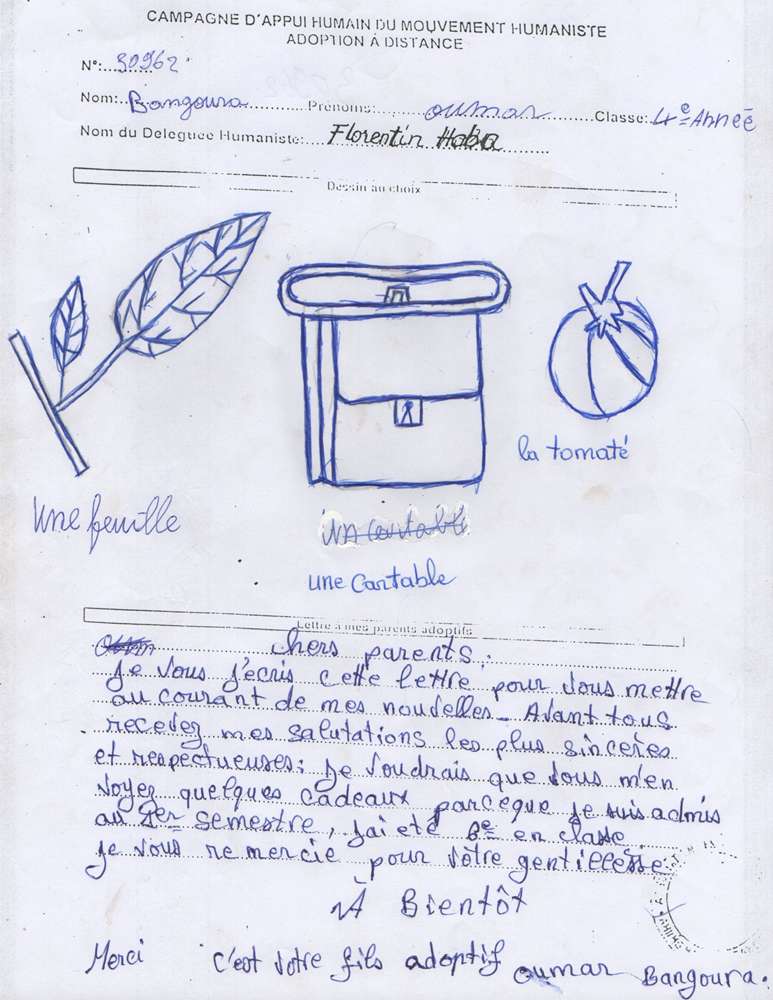 CAMPAGNE D'APPUI HUMAIN DU MOUVEMENT HUMANISTE
ADOPTION A DISTANCE
N°: 30962
Nom: Bangoura Prénoms: oumar Classe: 4e Année
Nom du Deleguée Humaniste: Florentin Haba
Dessin au choix
la tomaté
Une feuille
une Cartable
Lettre à mes parents adoptifs
chers parents,
Je vous j'ecris cette lettre pour vous mettre
au courant de mes nouvelles - Avant tous
recevez mes salutations les plus sincères
et respectueuses; je voudrais que vous m'en
voyez quelques cadeaux parceque je suis admis
au 1er semestre, j'ai eté 3e en classe
je vous remercie pour vôtre gentillesse
À Bientôt
Merci c'est vôtre fils adoptif oumar Bangoura.